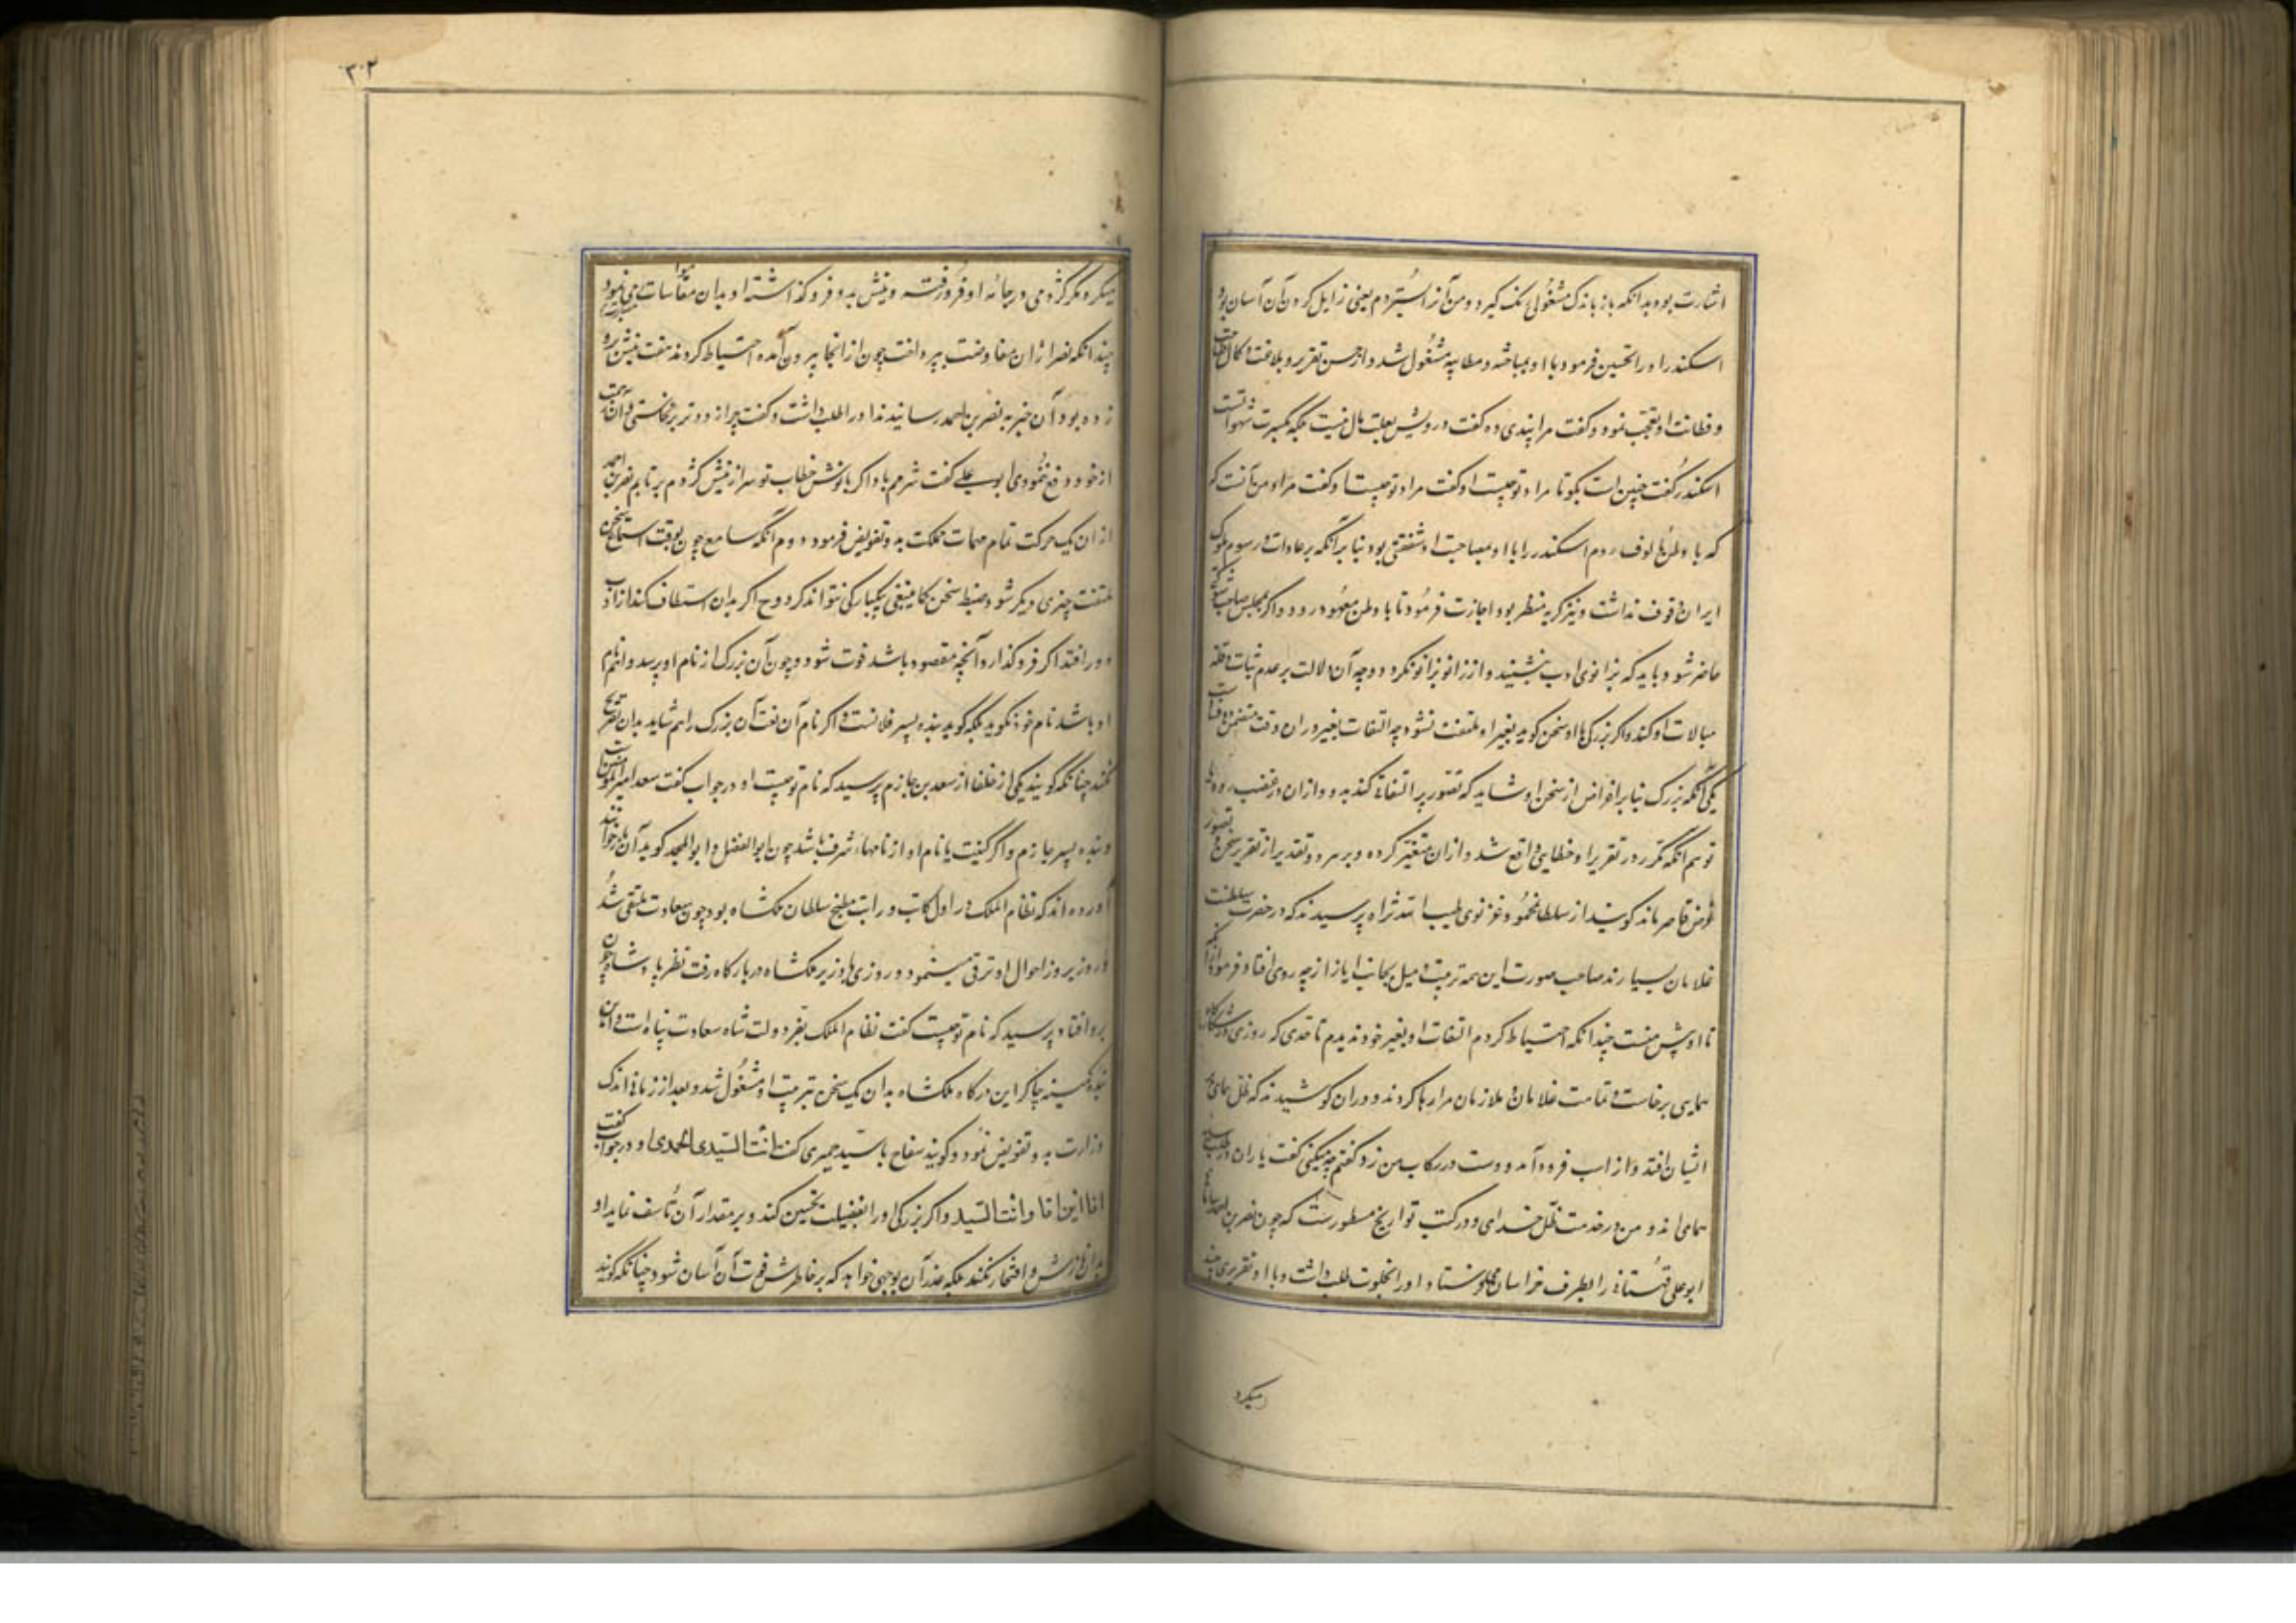 اشارت بود بدانکه باز باندک مشغولی نک کیرد و من آنرا ستردم یعنی زایل کردن آن آسان بود
اسکندر او را تحسین فرمود با او بمباحثه و مطایبه مشغول شد و از حسن تقریر و بلاغت کمال
و فطانت او تعجب نمود و کفت مرا پندی ده کفت درویشی بعلت مال نیست بلکه بکسرت شهوات
اسکندر کفت چنین است بکو تا مراد تو چیست او کفت مراد تو چیست کفت مراد من آنست که
که با وطن مالوف روم اسکندر را با او بمصاحبت او شفقتی بود بنابر آنکه بر عادات و رسوم ملوک
ایران وقوف نداشت و نیز کریه منظر بود اجازت فرمود تا با وطن معهود رود و اکر بمجلس صاحب
حاضر شود باید که بزانوی ادب بنشیند و از زانو بزانو نکردد و چه آن دلالت بر عدم ثبات و قلّه
مبالات او کند و اکر بزرکی با او سخن کوید بغیر او ملتفت نشود چه التفات بغیر در ان وقت متضمن
یکی آنکه بزرک بنابر اعراض از سخن او شاید که تصور پر التفاتی کند بدو و از ان در غضب رود
توهم آنکه مکرر در تقریر او خطایی واقع شد و از ان متغیر کرده و بر هر دو تقدیر از تقریر سخن
غرض قاصر ماند کویند از سلطان محمود غزنوی طیب الله ثراه پرسیدند که در حضرت سلطنت
غلامان بسیارند صاحب صورت این همه تربیت و میل بجانب ایاز از چه روی افتاد فرمود
تا او پش منست چندانکه احتیاط کردم التفات او بغیر خود ندیدم تا حدی که روزی در شکار
همایی برخاست و تمامت غلامان و ملازمان مرا رها کردند و در ان کوشیدند که ظل همای
ایشان افتد و از اسب فرود آمد و دست در رکاب من زد کفتم چه میکنی کفت یاران در طلب
همای اند و من در خدمت ظل خدای و در کتب تواریخ مسطورست که چون نصر بن احمد
ابو علی قهستانی را بطرف خراسان میفرستاد او را بخلوت طلب داشت و با او تقریری چند
میکرد
۳۰۲
میکرد مکر کژدمی در جامه او فرو رفته و نیش بدو فرو کذاشته او بدان مقاسات می نمود
چندانکه نصر از ان مفاوضت بپرداخت چون از انجا بیرون آمد احتیاط کردند هفت نیش
زده بود آن خبر به نصر بن احمد رسانیدند او را طلب داشت و کفت چرا زودتر برنخاستی
از خود دفع ننمودی ابو علی کفت شرمم باد اکر با وحشت خطاب تو سر از نیش کژدم برتابم نصر بن احمد
از ان یک حرکت تمام مهمات مملکت بدو تفویض فرمود دوم آنکه سامع چون بوقت استماع سخن
ملتفت چیزی دیکر شود ضبط سخن کما ینبغی بیکبارکی نتواند کرد و ح اکر بدان استکشاف کند از ادب
دور افتد اکر فرو کذارد آنچه مقصود باشد فوت شود و چون آن بزرک از نام او پرسد و نام
او باشد نام خود نکوید بلکه کوید بنده پسر فلانست و اکر نام آن نعت آن بزرک را هم شاید بدان تصریح
نکند چنانکه کویند یکی از خلفا از سعد بن حازم پرسید که نام تو چیست او در جواب کفت سعد امیر المومنین است
و بنده پسر حازم و اکر کنیت یا نام او از نامهای شرف باشد چون ابو الفضل و ابو المجد کوید آن
آورده اند که نظام الملک در اول کاتب و راتب مطبخ سلطان ملکشاه بود چون سعادت ملتقی شد
و روز بروز احوال او ترقی مینمود و روزی با وزیر ملکشاه در بارکاه رفت نظر پادشاه چون
برو افتاد پرسید که نام تو چیست کفت نظام الملک بفر دولت شاه سعادت پناه است و این
بنده کمینه چاکر این درکاه ملکشاه بدان یک سخن بتربیت او مشغول شد و بعد از زمانی اندک
وزارت بدو تفویض نمود و کویند سفاح با سید حمیری کفت انت السید الحمیری او در جواب کفت
انا ابن اقا وانت السید و اکر بزرکی او را بفضیلت تحسین کند و بر مقدار آن تأسف نماید او
بدان نازش و افتخار نکند بلکه عذر آن بوجهی خواهد که بر خاطرش فوت آن آسان شود چنانکه کویند